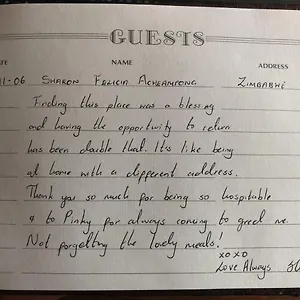 GUESTS
TE NAME ADDRESS
11-06 SHARON FELICIA ACHEAMPONG ZIMBABWE
Finding this place was a blessing
and having the opportunity to return
has been double that. It's like being
at home with a different address.
Thank you so much for being so hospitable
& to Pinky for always coming to greet me.
Not forgetting the lovely meals!
XOXO
Love Always